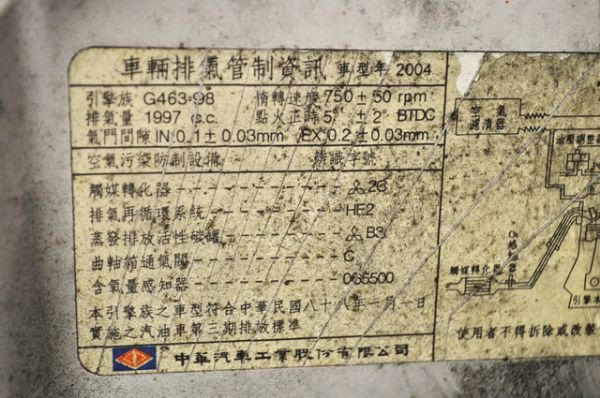 車輛排氣管制資訊 車型年 2004
引擎族 G463-98 惰轉速度 750 ± 50 rpm
排氣量 1997 c.c. 點火正時 5° ± 2° BTDC
氣門間隙 IN:0.1 ± 0.03mm EX:0.2 ± 0.03mm
空氣污染防制設備 辨識字號
觸媒轉化器 2C
排氣再循環系統 HF2
蒸發排放活性碳罐 B3
曲軸箱通氣閥 C
含氧量感知器 065500
本引擎族之車型符合中華民國八十八年一月一日
實施之汽油車第三期排放標準
中華汽車工業股份有限公司
空氣
濾清器
油壓調整
O₂感知器
觸媒轉化器
引擎本
使用者不得拆除或改裝